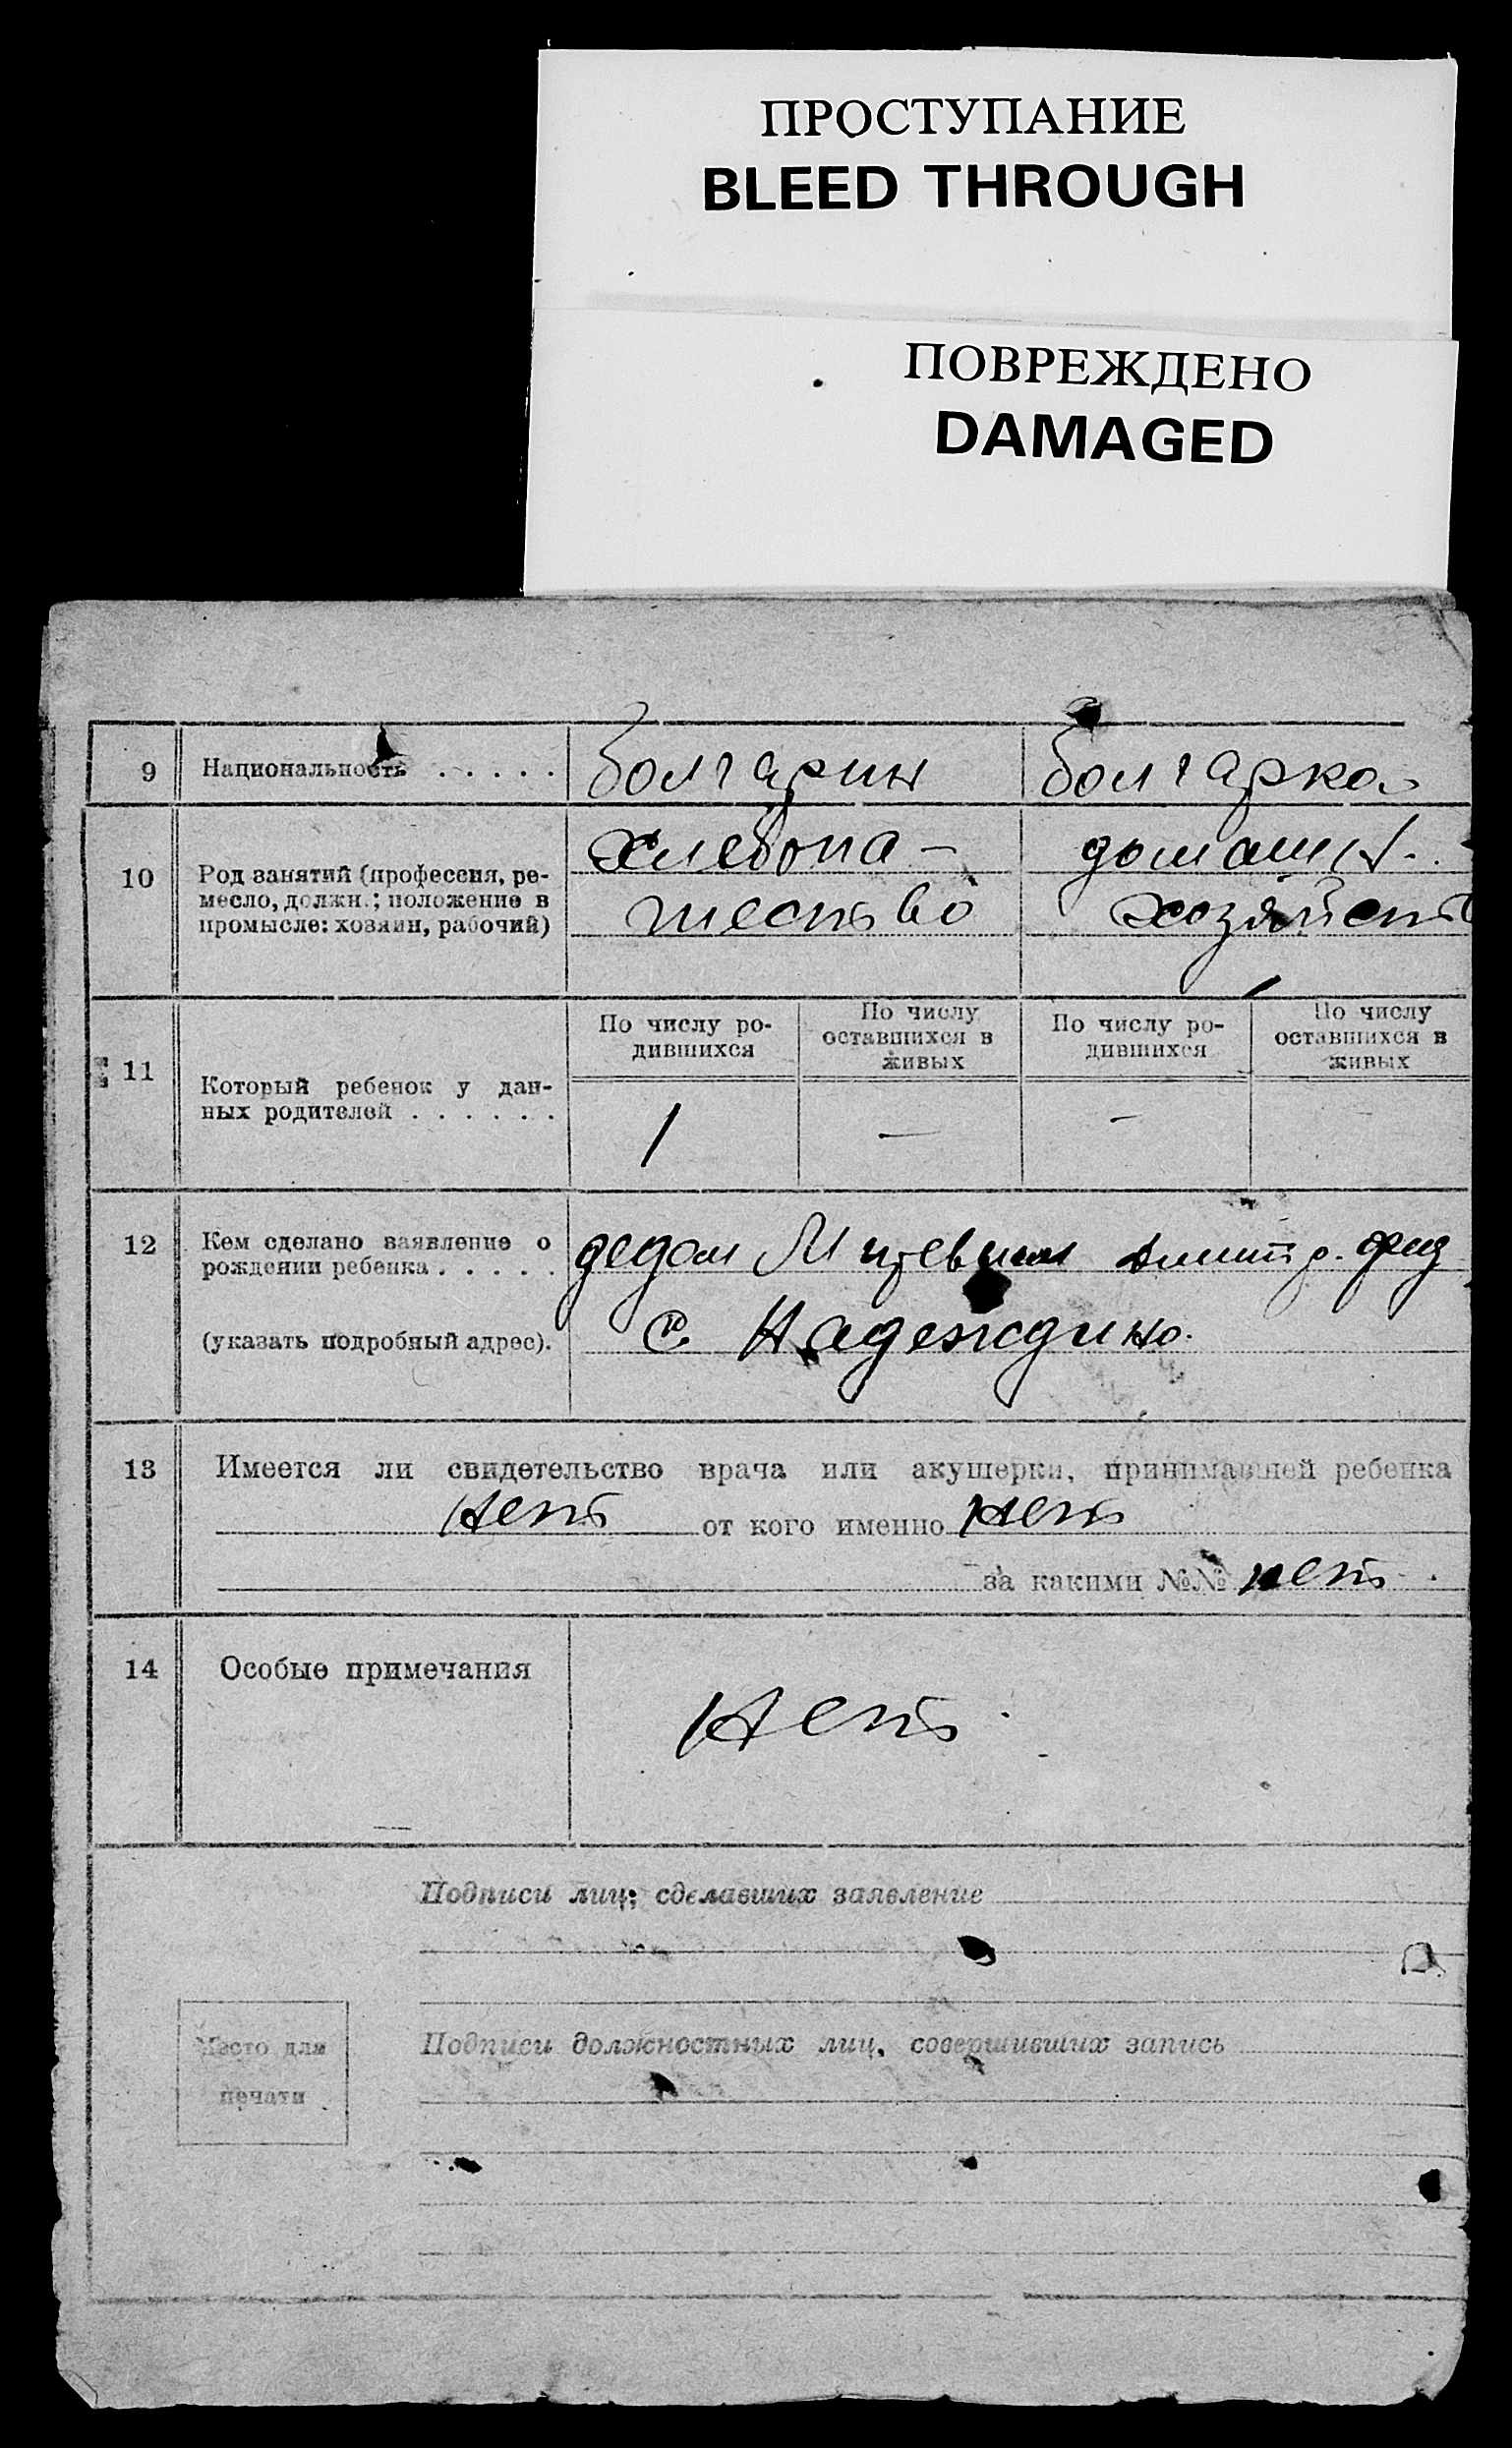 ПРОСТУПАНИЕ
BLEED THROUGH
ПОВРЕЖДЕНО
DAMAGED
9 Национальность . . . . . болгарин болгарка
10 Род занятий (профессия, ре-
месло, должн.; положение в
промысле: хозяин, рабочий)
хлебопа-
шество
домашн.
хозяйств
11 Который ребенок у дан-
ных родителей . . . . . .
По числу ро-
дившихся
По числу
оставшихся в
живых
По числу ро-
дившихся
По числу
оставшихся в
живых
1 — —
12 Кем сделано заявление о
рождении ребенка . . . . .
(указать подробный адрес).
дедом Дмитр.
с. Надеждино.
13 Имеется ли свидетельство врача или акушерки, принимавшей ребенка
нет от кого именно нет
за какими №№ нет.
14 Особые примечания нет.
Подписи лиц, сделавших заявление
Место для
печати
Подписи должностных лиц, совершивших запись